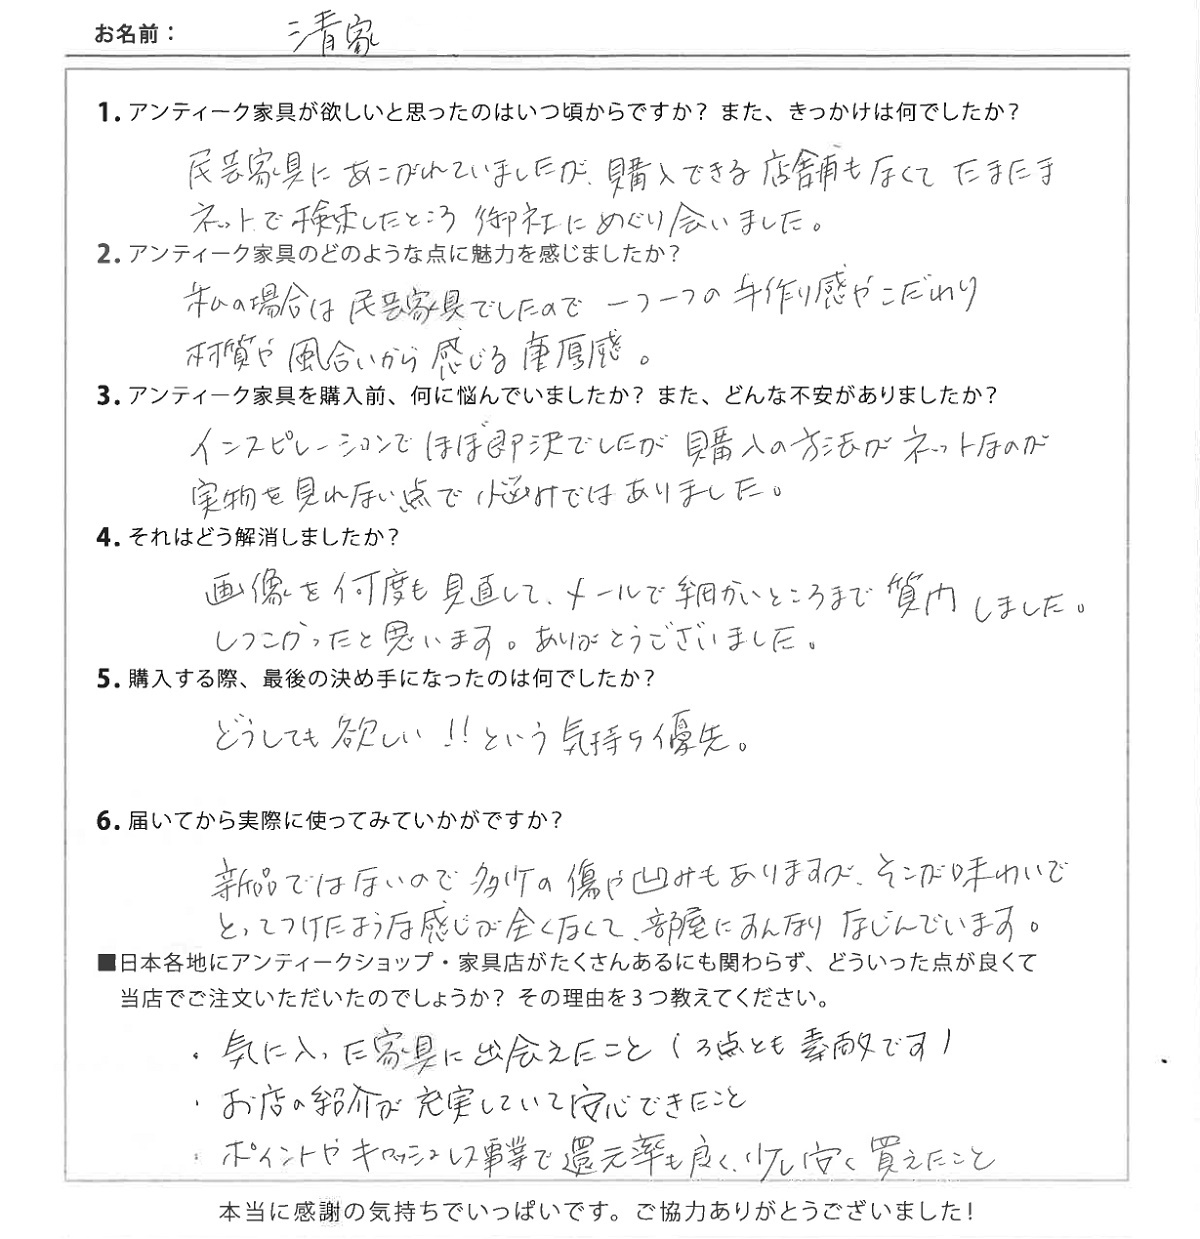 お名前： 清家
1. アンティーク家具が欲しいと思ったのはいつ頃からですか？ また、きっかけは何でしたか？
民芸家具にあこがれていましたが、購入できる店舗もなくて たまたま
ネットで検索したところ 御社にめぐり会いました。
2. アンティーク家具のどのような点に魅力を感じましたか？
私の場合は民芸家具でしたので 一つ一つの手作り感やこだわり
材質や風合いから感じる重厚感。
3. アンティーク家具を購入前、何に悩んでいましたか？ また、どんな不安がありましたか？
インスピレーションでほぼ即決でしたが 購入の方法がネットなのが
実物を見れない点で悩みではありました。
4. それはどう解消しましたか？
画像を何度も見直して、メールで細かいところまで質内しました。
しつこかったと思います。ありがとうございました。
5. 購入する際、最後の決め手になったのは何でしたか？
どうしても欲しい!!という気持ち優先。
6. 届いてから実際に使ってみていかがですか？
新品ではないので多少の傷や凹みもありますが、そこが味わいで
とってつけたような感じが全くなくて、部屋にすんなりなじんでいます。
■日本各地にアンティークショップ・家具店がたくさんあるにも関わらず、どういった点が良くて
当店でご注文いただいたのでしょうか？ その理由を3つ教えてください。
・気に入った家具に出会えたこと（3点とも素敵です）
・お店の紹介が充実していて安心できたこと
・ポイントやキャッシュレス事業で還元率も良く、少し安く買えたこと
本当に感謝の気持ちでいっぱいです。ご協力ありがとうございました！